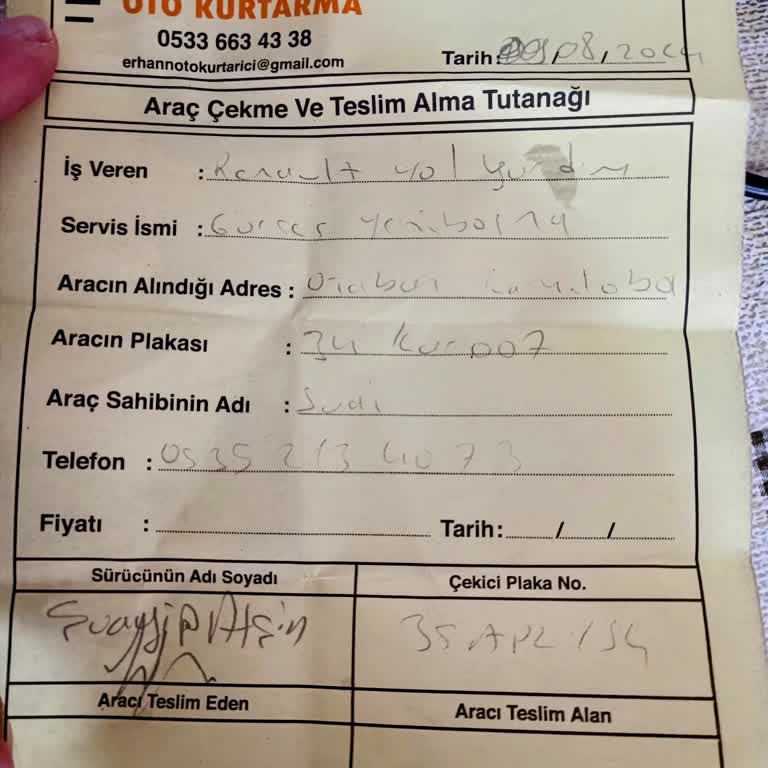 OTO KURTARMA
0533 663 43 38
erhannotokurtarici@gmail.com
Tarih: 09/08/2024
Araç Çekme Ve Teslim Alma Tutanağı
İş Veren : Renault yol yardım
Servis İsmi : Gürses yenibosna
Aracın Alındığı Adres :
Aracın Plakası : 34 Kur 007
Araç Sahibinin Adı : Sudi
Telefon : 0535 213 40 73
Fiyatı : Tarih: / /
Sürücünün Adı Soyadı Çekici Plaka No.
35 APZ 154
Aracı Teslim Eden Aracı Teslim Alan